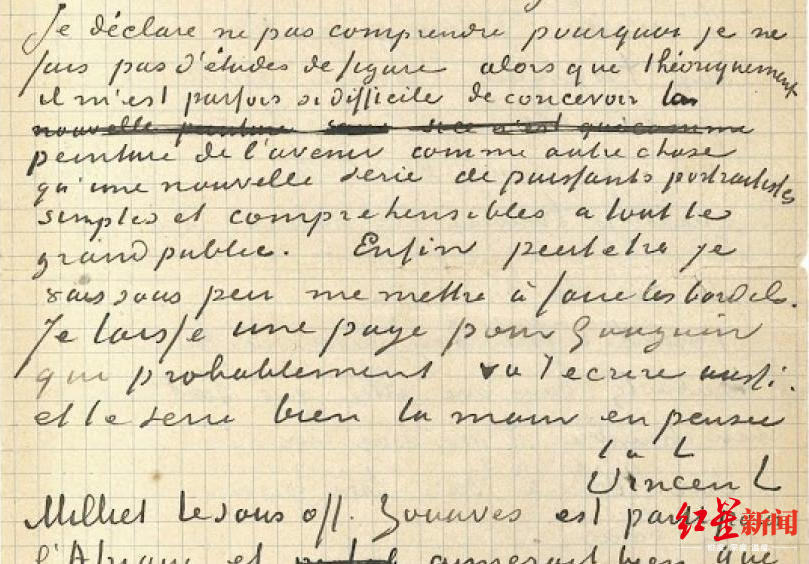 Je déclare ne pas comprendre pourquoi je ne
fais pas d'études de figure alors que théoriquement
il m'est parfois si difficile de concevoir la
nouvelle peinture sice n'est que comme
peinture de l'avenir comme autre chose
qu'une nouvelle serie de puissants portraitistes
simples et comprehensibles a tout le
grand public. Enfin peutetre je
vais sous peu me mettre à faire les bordels.
Je laisse une page pour Gauguin
qui probablement va t'ecrire aussi.
et te serre bien la main en pensee
t à t
Vincent
Milliet le sous off. Zouaves est parti pour
l'Afrique et aimerait bien que
红星新闻